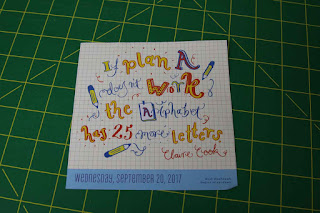 If plan A
doesn't work
the alphabet
has 25 more letters
Claire Cook
WEDNESDAY, SEPTEMBER 20, 2017